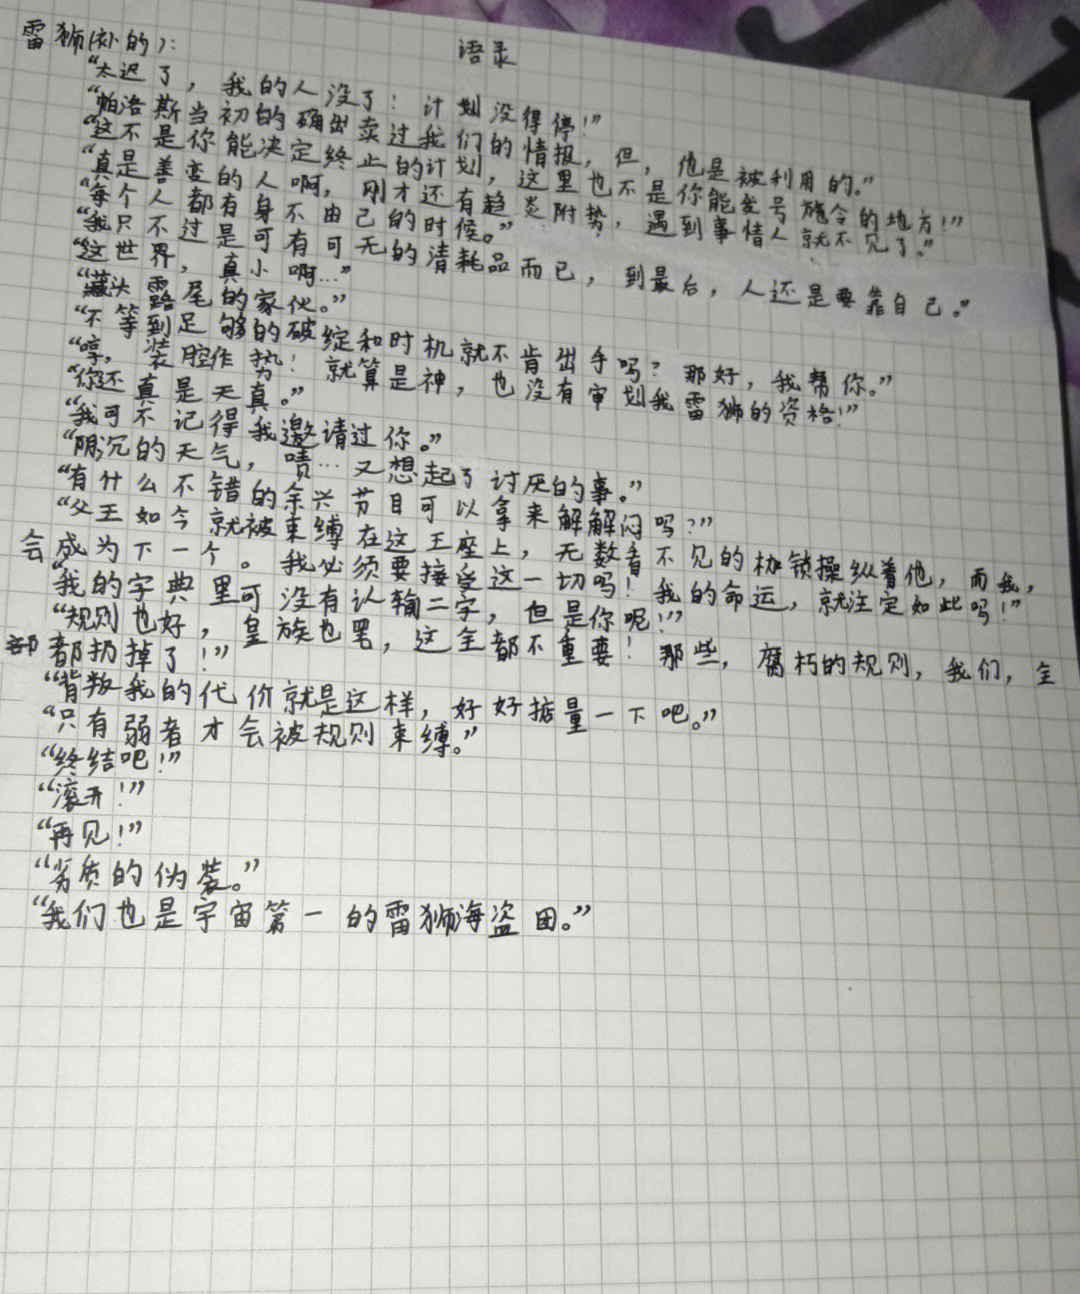 语录
雷狮(补的):
“太迟了，我的人没了！计划没得停！”
“帕洛斯当初的确出卖过我们的情报，但，他是被利用的。”
“这不是你能决定终止的计划，这里也不是你能发号施令的地方！”
“真是善变的人啊，刚才还有趋炎附势，遇到事情人就不见了。”
“每个人都有身不由己的时候。”
“我只不过是可有可无的清耗品而已，到最后，人还是要靠自己。”
“这世界，真小啊…”
“藏头露尾的家伙。”
“不等到足够的破绽和时机就不肯出手吗？那好，我帮你。”
“哼，装腔作势！就算是神，也没有审划我雷狮的资格！”
“你还真是天真。”
“我可不记得我邀请过你。”
“阴沉的天气，啧…又想起了讨厌的事。”
“有什么不错的余兴节目可以拿来解解闷吗？”
“父王如今就被束缚在这王座上，无数看不见的枷锁操纵着他，而我，
会成为下一个。我必须要接受这一切吗！我的命运，就注定如此吗！”
“我的字典里可没有认输二字，但是你呢！”
“规则也好，皇族也罢，这全都不重要！那些，腐朽的规则，我们，全
部都扔掉了！”
“背叛我的代价就是这样，好好掂量一下吧。”
“只有弱者才会被规则束缚。”
“终结吧！”
“滚开！”
“再见！”
“劣质的伪装。”
“我们也是宇宙第一的雷狮海盗团。”